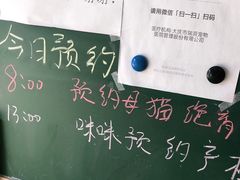 请用微信「扫一扫」扫码
医疗机构:大庆市瑞派宠物
医院管理股份有限公司
今日预约
8:00 预约母猫绝育
13:00 咪咪预约产